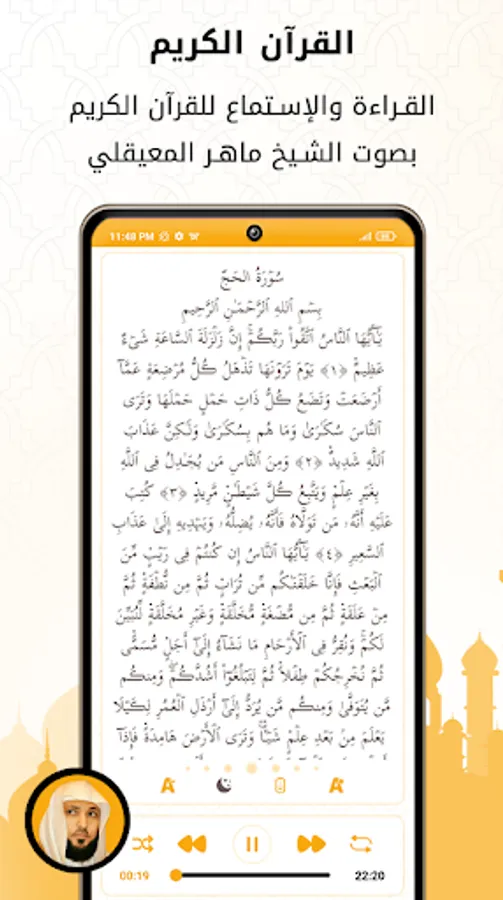 القرآن الكريم
القراءة والإستماع للقرآن الكريم
بصوت الشيخ ماهر المعيقلي
11:48 PM
سُورَةُ الحَجّ
بِسۡمِ ٱللَّهِ ٱلرَّحۡمَـٰنِ ٱلرَّحِيمِ
يَـٰۤأَيُّهَا ٱلنَّاسُ ٱتَّقُوا۟ رَبَّكُمۡۚ إِنَّ زَلۡزَلَةَ ٱلسَّاعَةِ شَیۡءٌ
عَظِيمٌ ﴿١﴾ يَوۡمَ تَرَوۡنَهَا تَذۡهَلُ كُلُّ مُرۡضِعَةٍ عَمَّاۤ
أَرۡضَعَتۡ وَتَضَعُ كُلُّ ذَاتِ حَمۡلٍ حَمۡلَهَا وَتَرَى
ٱلنَّاسَ سُكَـٰرَىٰ وَمَا هُم بِسُكَـٰرَىٰ وَلَـٰكِنَّ عَذَابَ
ٱللَّهِ شَدِيدٌ ﴿٢﴾ وَمِنَ ٱلنَّاسِ مَن يُجَـٰدِلُ فِی ٱللَّهِ
بِغَيۡرِ عِلۡمٍ وَيَتَّبِعُ كُلَّ شَيۡطَـٰنٍ مَّرِيدٍ ﴿٣﴾ كُتِبَ
عَلَيۡهِ أَنَّهُۥ مَن تَوَلَّاهُ فَأَنَّهُۥ يُضِلُّهُۥ وَيَهۡدِيهِ إِلَىٰ عَذَابِ
ٱلسَّعِيرِ ﴿٤﴾ يَـٰۤأَيُّهَا ٱلنَّاسُ إِن كُنتُمۡ فِی رَيۡبٍ مِّنَ
ٱلۡبَعۡثِ فَإِنَّا خَلَقۡنَـٰكُم مِّن تُرَابٍ ثُمَّ مِن نُّطۡفَةٍ ثُمَّ
مِنۡ عَلَقَةٍ ثُمَّ مِن مُّضۡغَةٍ مُّخَلَّقَةٍ وَغَيۡرِ مُخَلَّقَةٍ لِّنُبَيِّنَ
لَكُمۡۚ وَنُقِرُّ فِی ٱلۡأَرۡحَامِ مَا نَشَاۤءُ إِلَىٰۤ أَجَلٍ مُّسَمًّى
ثُمَّ نُخۡرِجُكُمۡ طِفۡلًا ثُمَّ لِتَبۡلُغُوۤا۟ أَشُدَّكُمۡۖ وَمِنكُم
مَّن يُتَوَفَّىٰ وَمِنكُم مَّن يُرَدُّ إِلَىٰۤ أَرۡذَلِ ٱلۡعُمُرِ لِكَيۡلَا
يَعۡلَمَ مِنۢ بَعۡدِ عِلۡمٍ شَيۡـًٔاۚ وَتَرَى ٱلۡأَرۡضَ هَامِدَةً فَإِذَاۤ
00:19
22:20